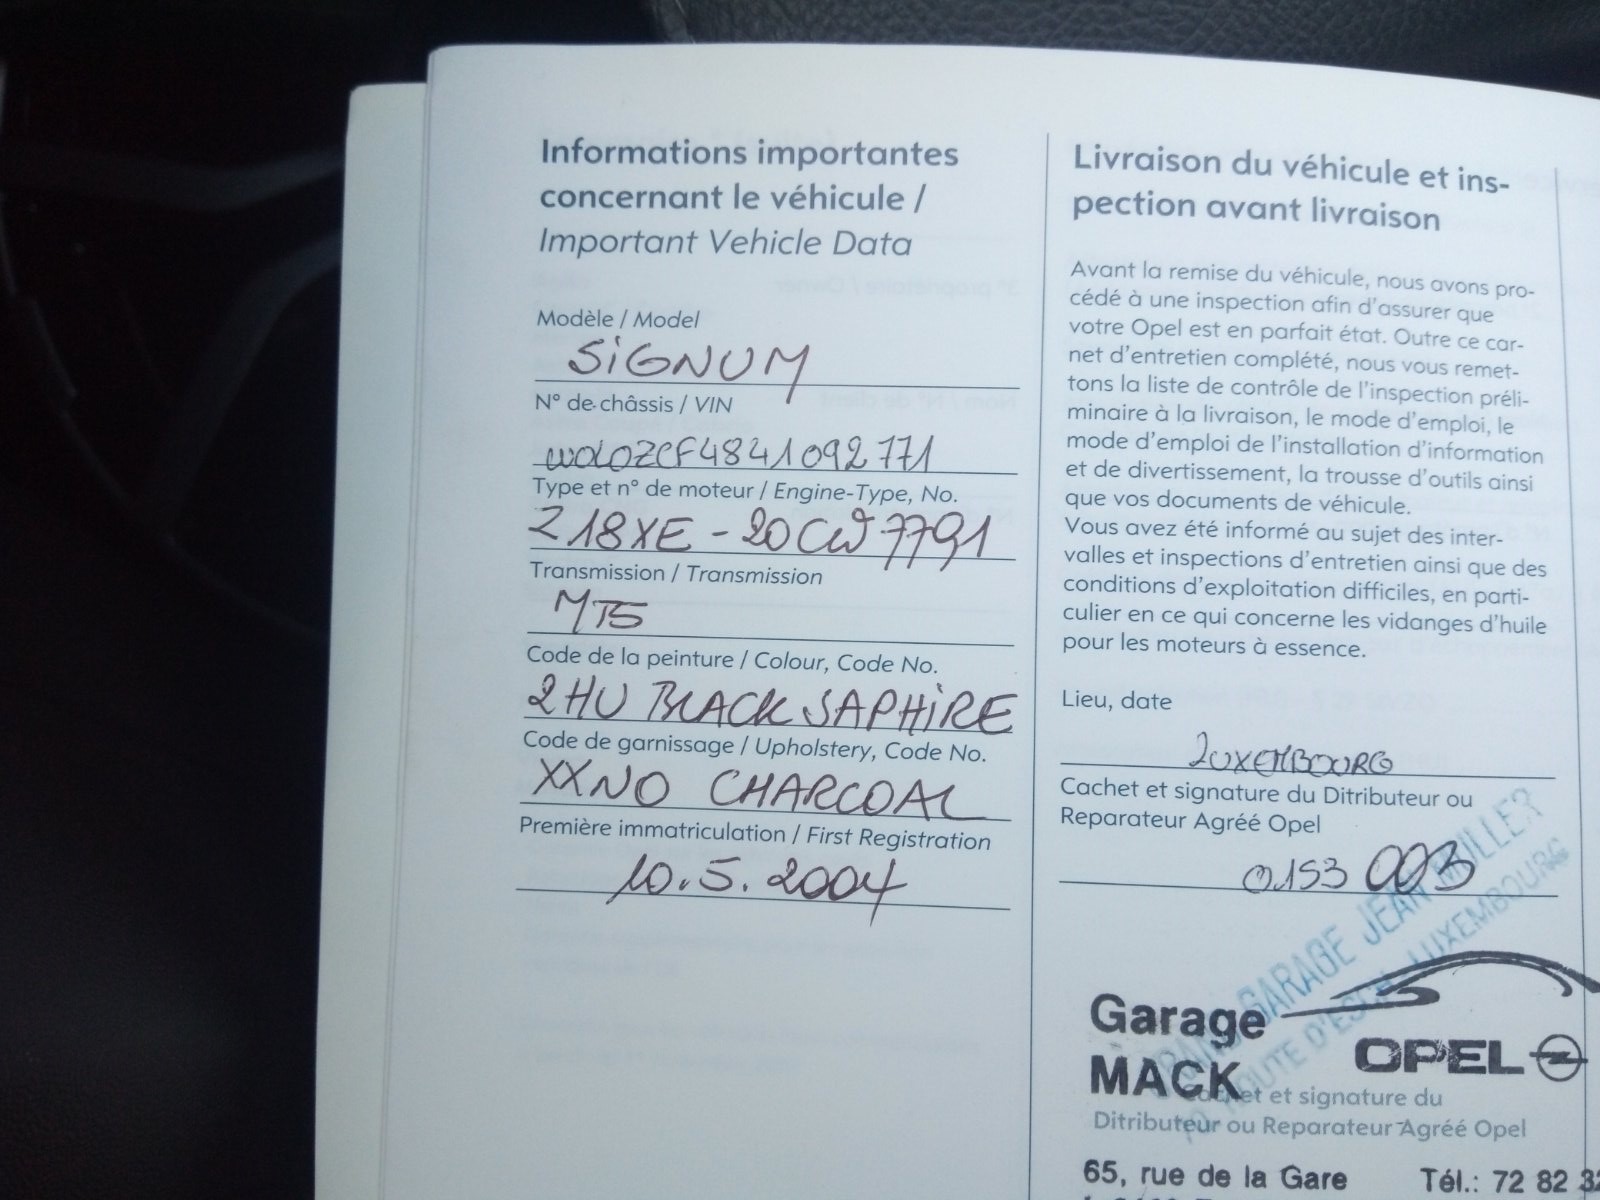 Informations importantes
concernant le véhicule /
Important Vehicle Data
Modèle / Model
SiGNUM
N° de châssis / VIN
W0L0ZCF4841092771
Type et n° de moteur / Engine-Type, No.
Z18XE - 20CW7791
Transmission / Transmission
MT5
Code de la peinture / Colour, Code No.
2HU BLACK SAPHiRE
Code de garnissage / Upholstery, Code No.
XXNO CHARCOAL
Première immatriculation / First Registration
10.5.2004
Livraison du véhicule et ins-
pection avant livraison
Avant la remise du véhicule, nous avons pro-
cédé à une inspection afin d'assurer que
votre Opel est en parfait état. Outre ce car-
net d'entretien complété, nous vous remet-
tons la liste de contrôle de l'inspection préli-
minaire à la livraison, le mode d'emploi, le
mode d'emploi de l'installation d'information
et de divertissement, la trousse d'outils ainsi
que vos documents de véhicule.
Vous avez été informé au sujet des inter-
valles et inspections d'entretien ainsi que des
conditions d'exploitation difficiles, en parti-
culier en ce qui concerne les vidanges d'huile
pour les moteurs à essence.
Lieu, date
LUXEMBOURG
Cachet et signature du Ditributeur ou
Reparateur Agréé Opel
0153 003
GRAND GARAGE JEAN MULLER
ROUTE D'ESCH, LUXEMBOURG
Garage
MACK
OPEL
Cachet et signature du
Ditributeur ou Reparateur Agréé Opel
65, rue de la Gare Tél.: 72 82 32